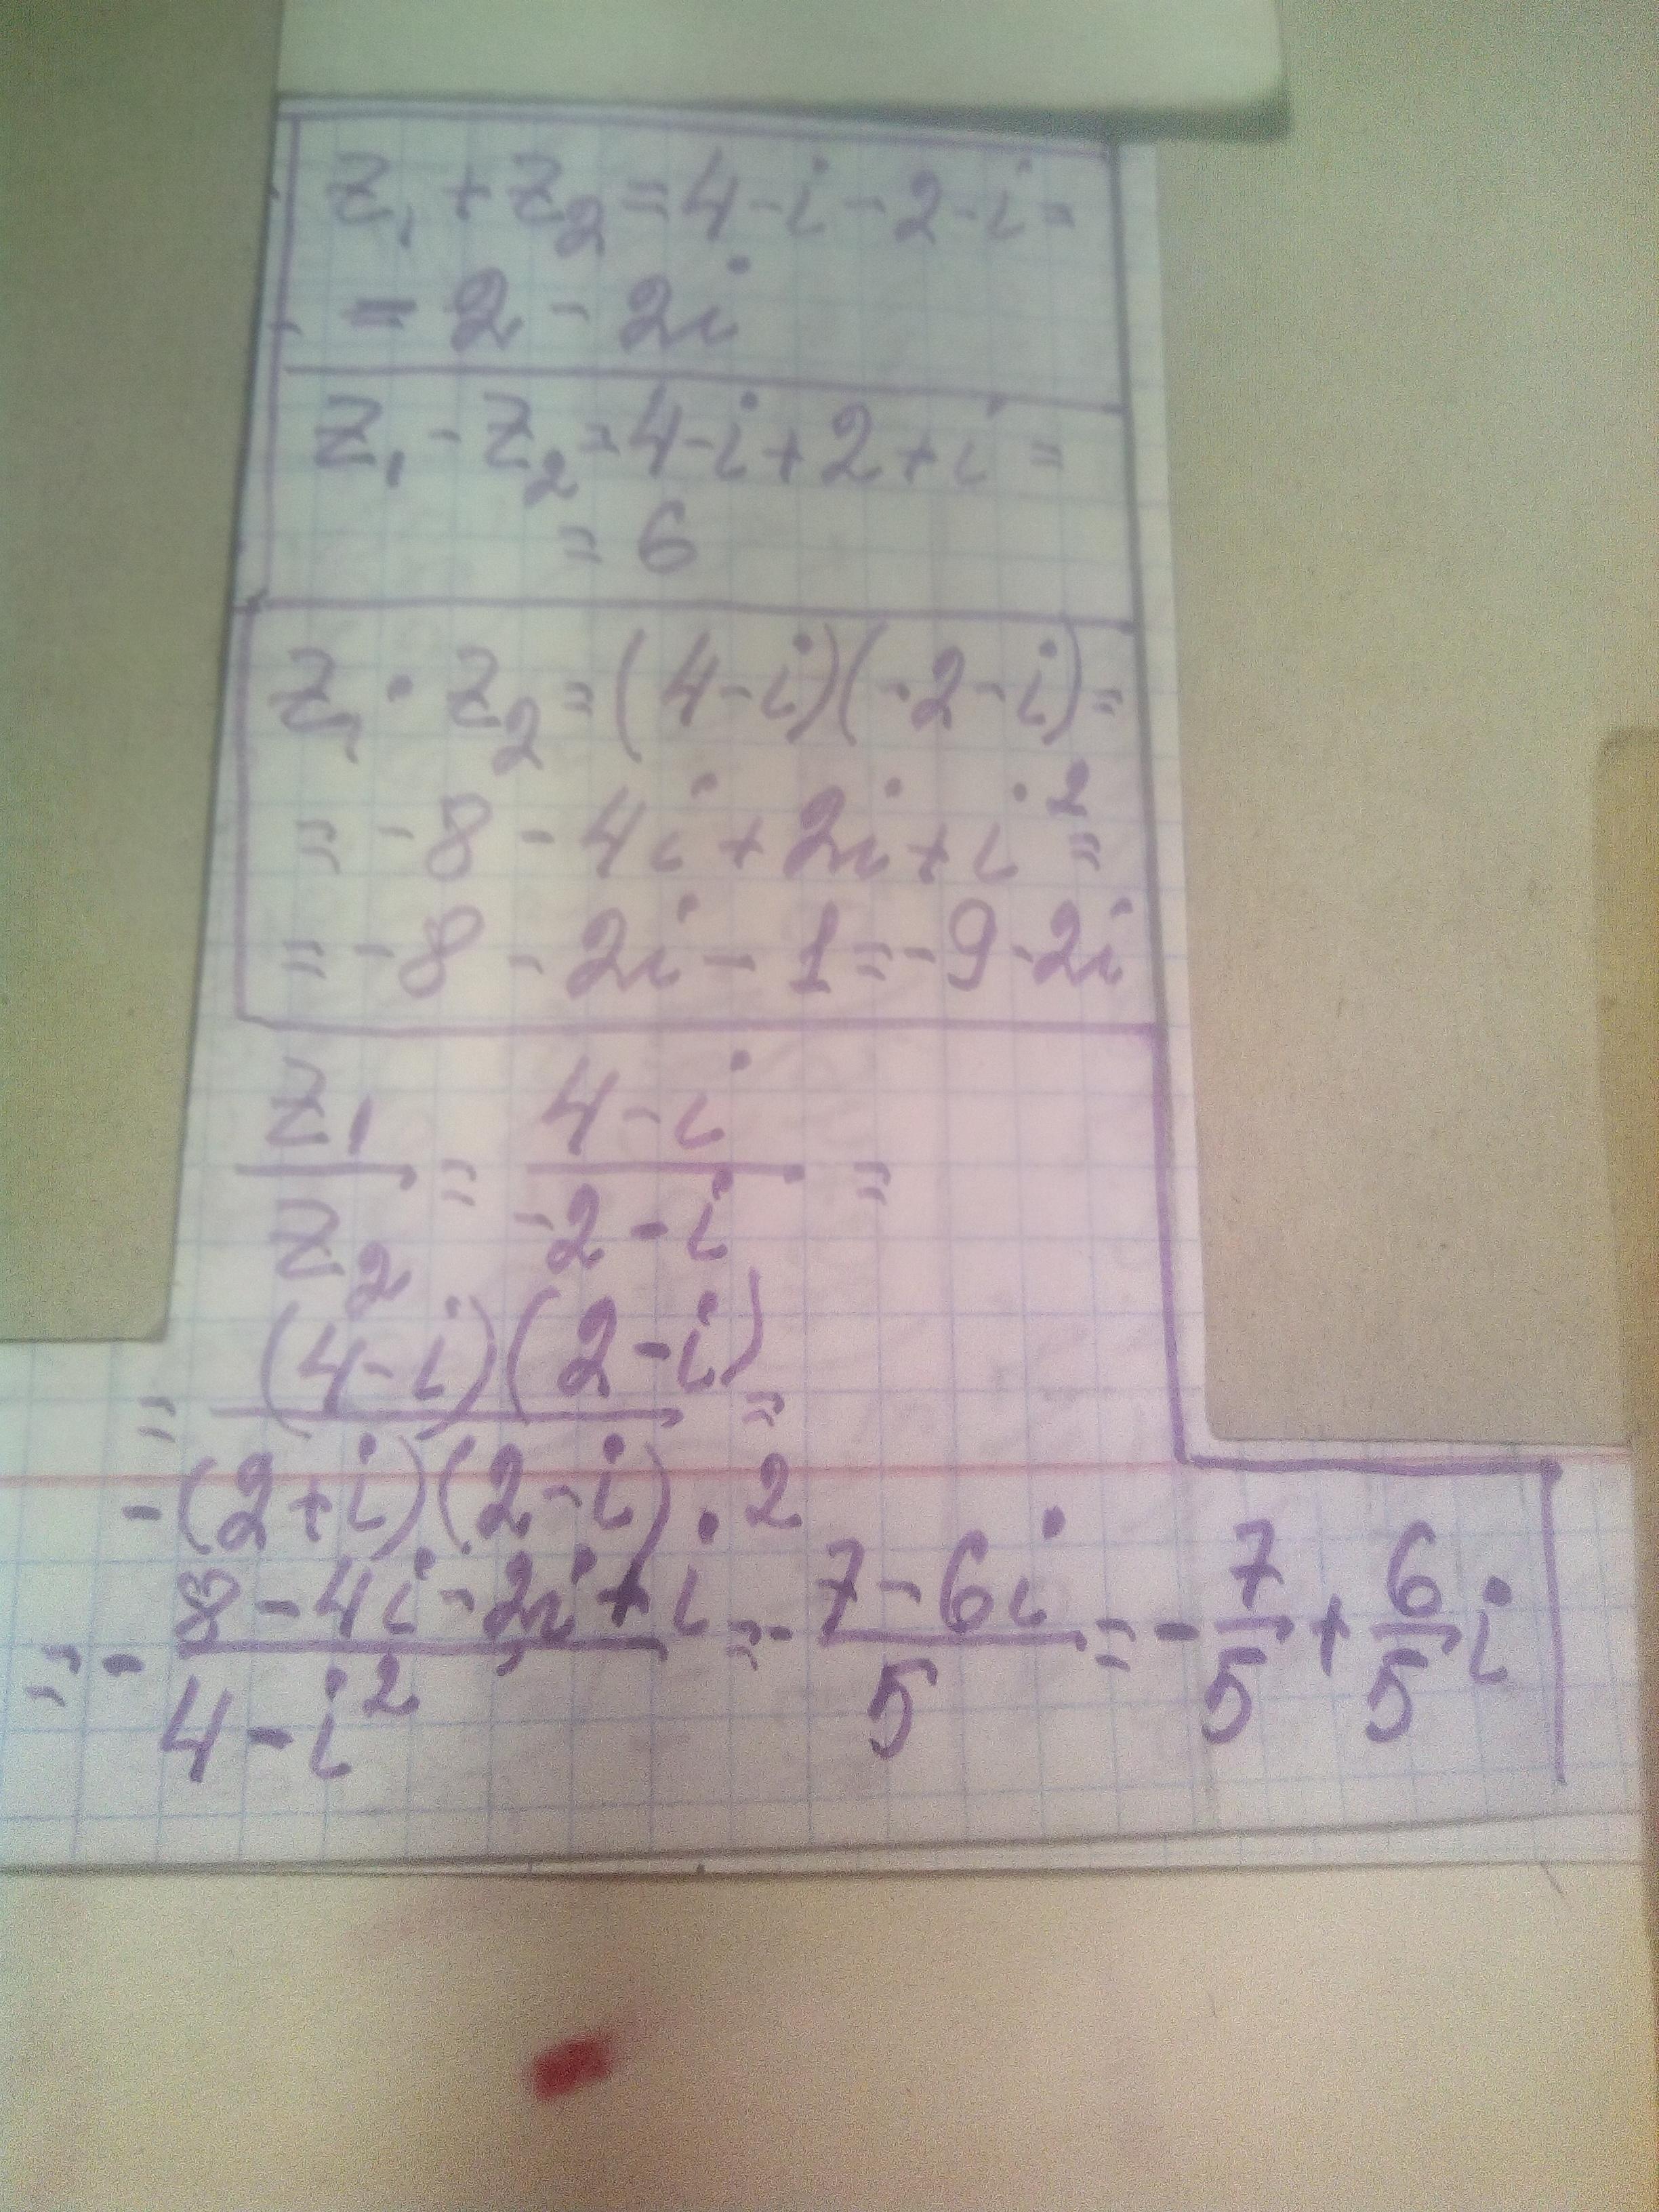 z₁ + z₂ = 4 - i - 2 - i =
= 2 - 2i
z₁ - z₂ = 4 - i + 2 + i =
= 6
z₁ · z₂ = (4 - i)(-2 - i) =
= -8 - 4i + 2i + i² =
= -8 - 2i - 1 = -9 - 2i
z₁/z₂ = (4 - i)/(-2 - i) =
= (4 - i)(2 - i)/-(2 + i)(2 - i) =
= - (8 - 4i - 2i + i²)/(4 - i²) = - (7 - 6i)/5 = - 7/5 + 6/5 i